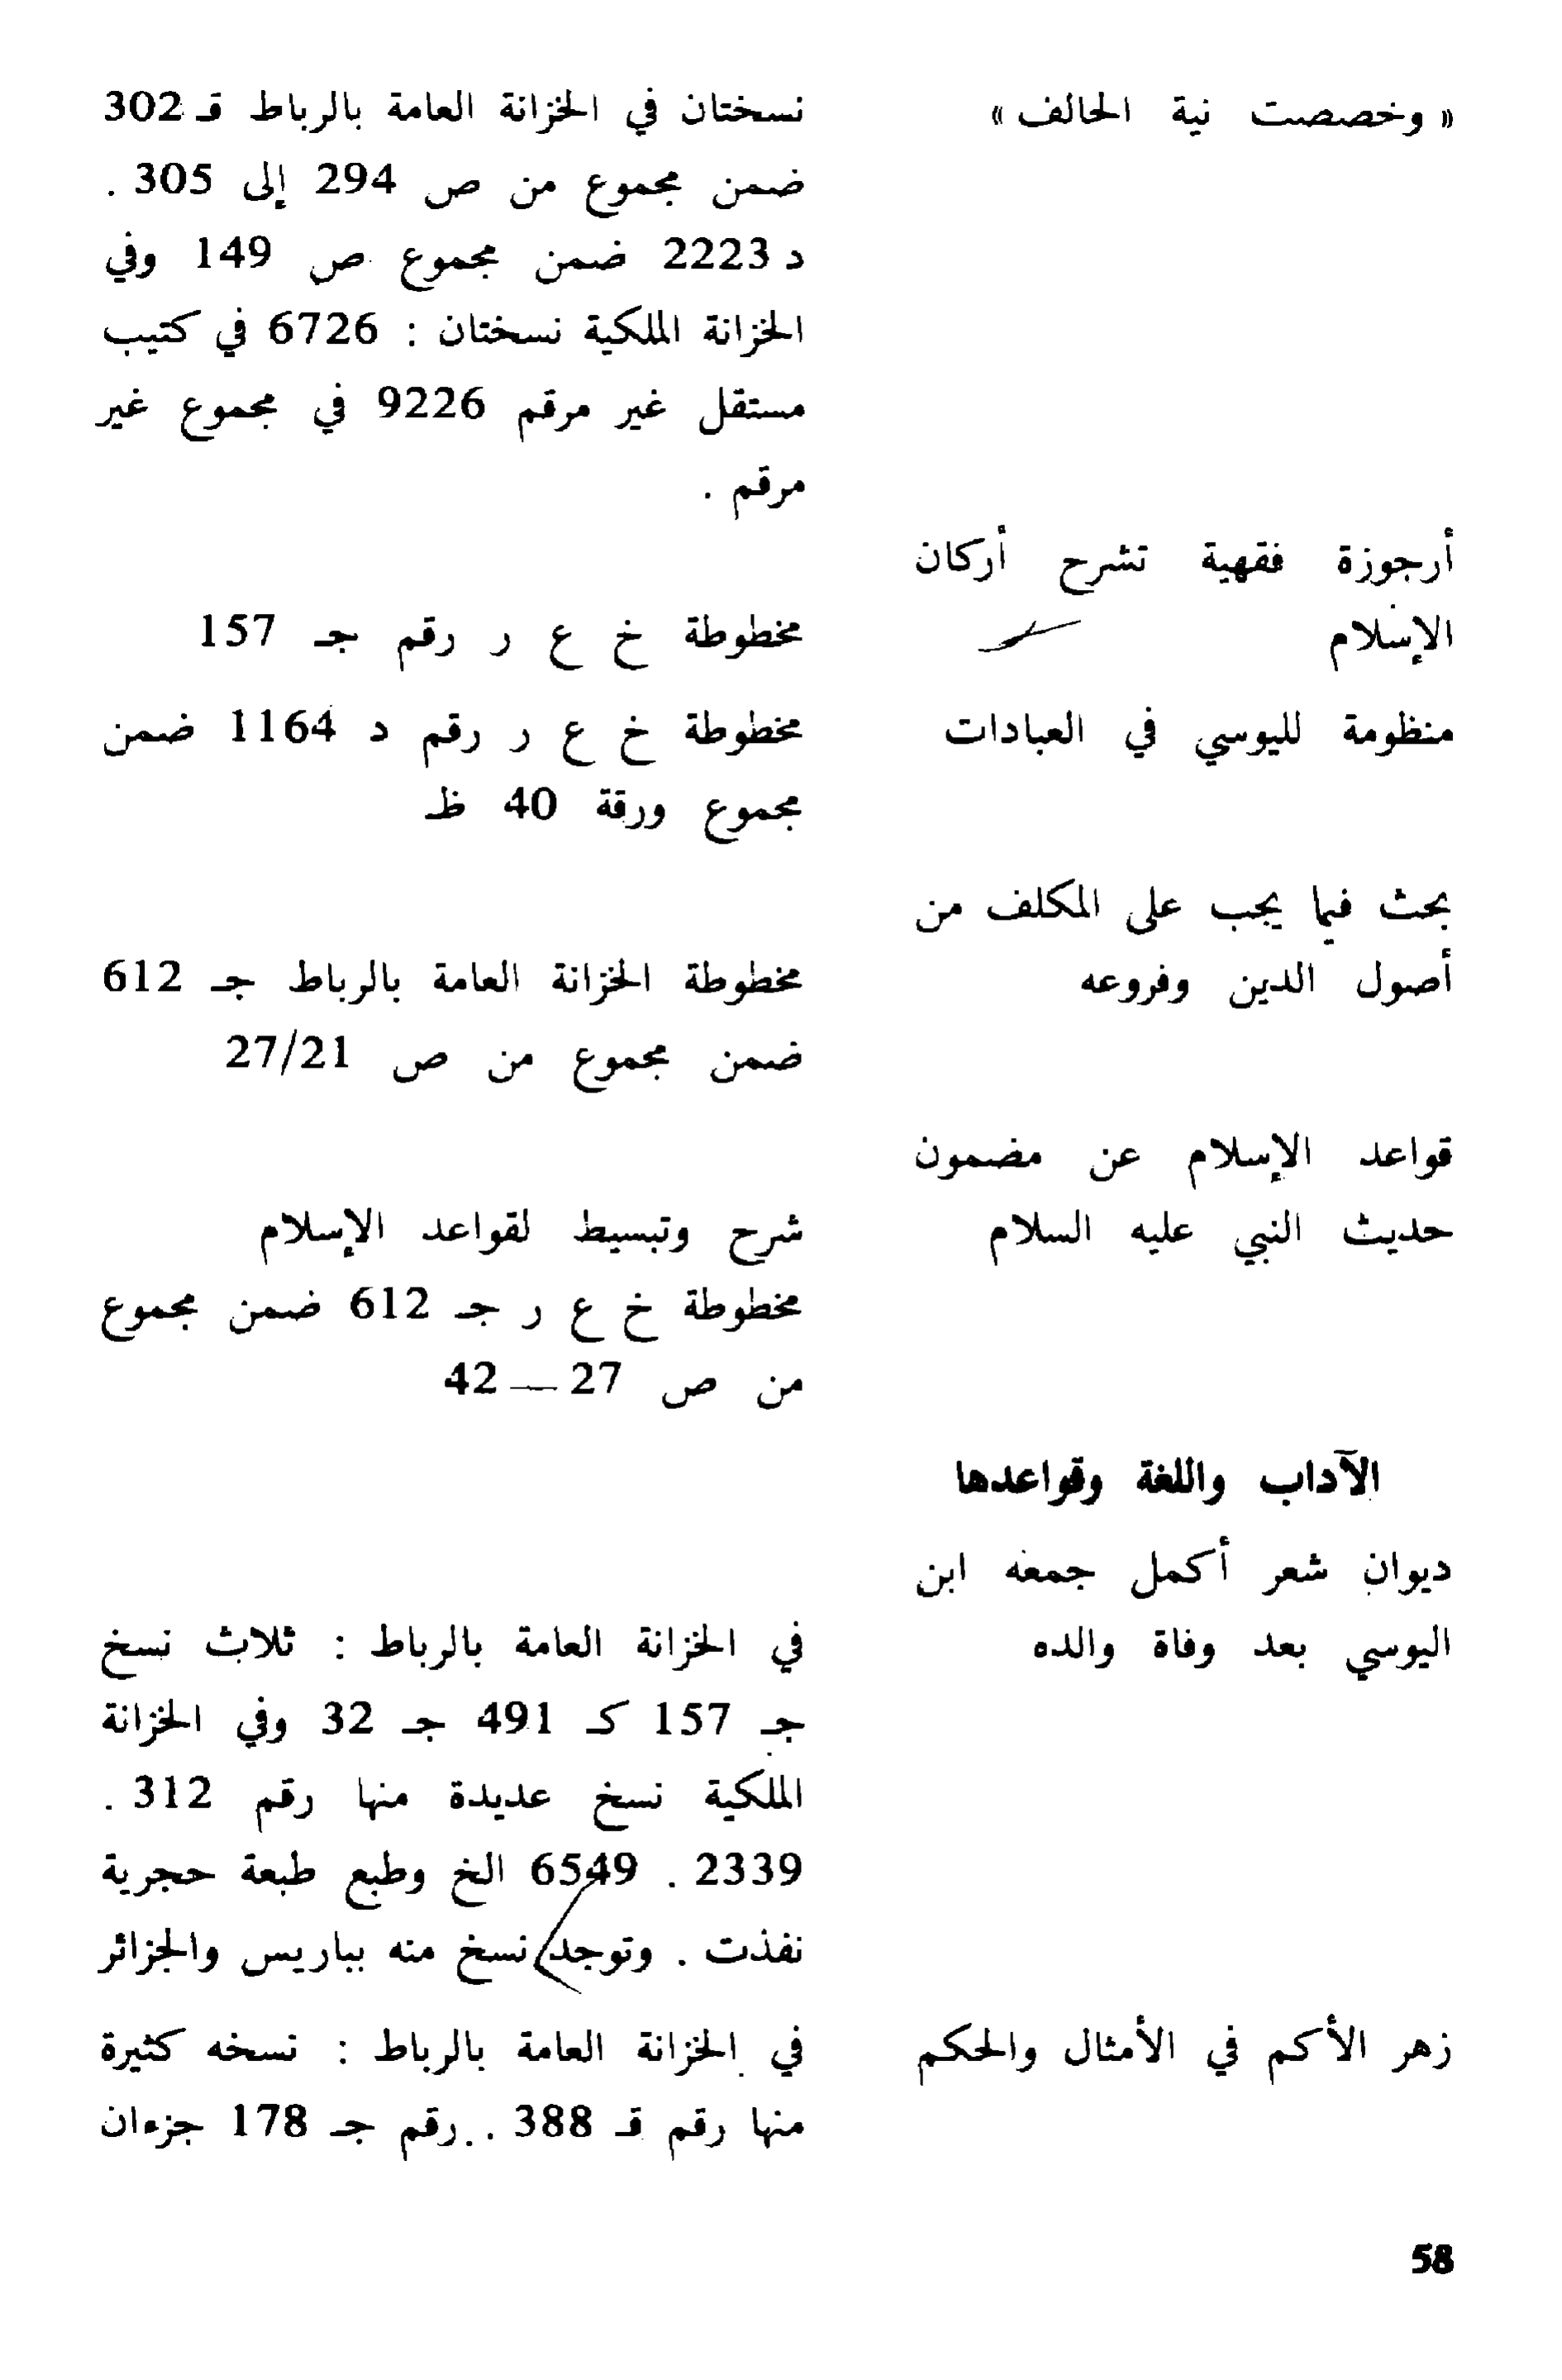 « وخصصت نية الحالف »
نسختان في الخزانة العامة بالرباط قـ 302
ضمن مجموع من ص 294 إلى 305 .
د 2223 ضمن مجموع ص 149 وفي
الخزانة الملكية نسختان : 6726 في كتيب
مستقل غير مرقم 9226 في مجموع غير
مرقم .
أرجوزة فقهية تشرح أركان
الإسلام
مخطوطة خ ع ر رقم جـ 157
منظومة لليوسي في العبادات
مخطوطة خ ع ر رقم د 1164 ضمن
مجموع ورقة 40 ظـ
بحث فيما يجب على المكلف من
أصول الدين وفروعه
مخطوطة الخزانة العامة بالرباط جـ 612
ضمن مجموع من ص 27/21
قواعد الإسلام عن مضمون
حديث النبي عليه السلام
شرح وتبسيط لقواعد الإسلام
مخطوطة خ ع ر جـ 612 ضمن مجموع
من ص 27 — 42
الآداب واللغة وقواعدها
ديوان شعر أكمل جمعه ابن
اليوسي بعد وفاة والده
في الخزانة العامة بالرباط : ثلاث نسخ
جـ 157 كـ 491 جـ 32 وفي الخزانة
الملكية نسخ عديدة منها رقم 312 .
2339 . 6549 الخ وطبع طبعة حجرية
نفذت . وتوجد نسخ منه بباريس والجزائر
زهر الأكم في الأمثال والحكم
في الخزانة العامة بالرباط : نسخه كثيرة
منها رقم قـ 388 . .رقم جـ 178 جزءان
58